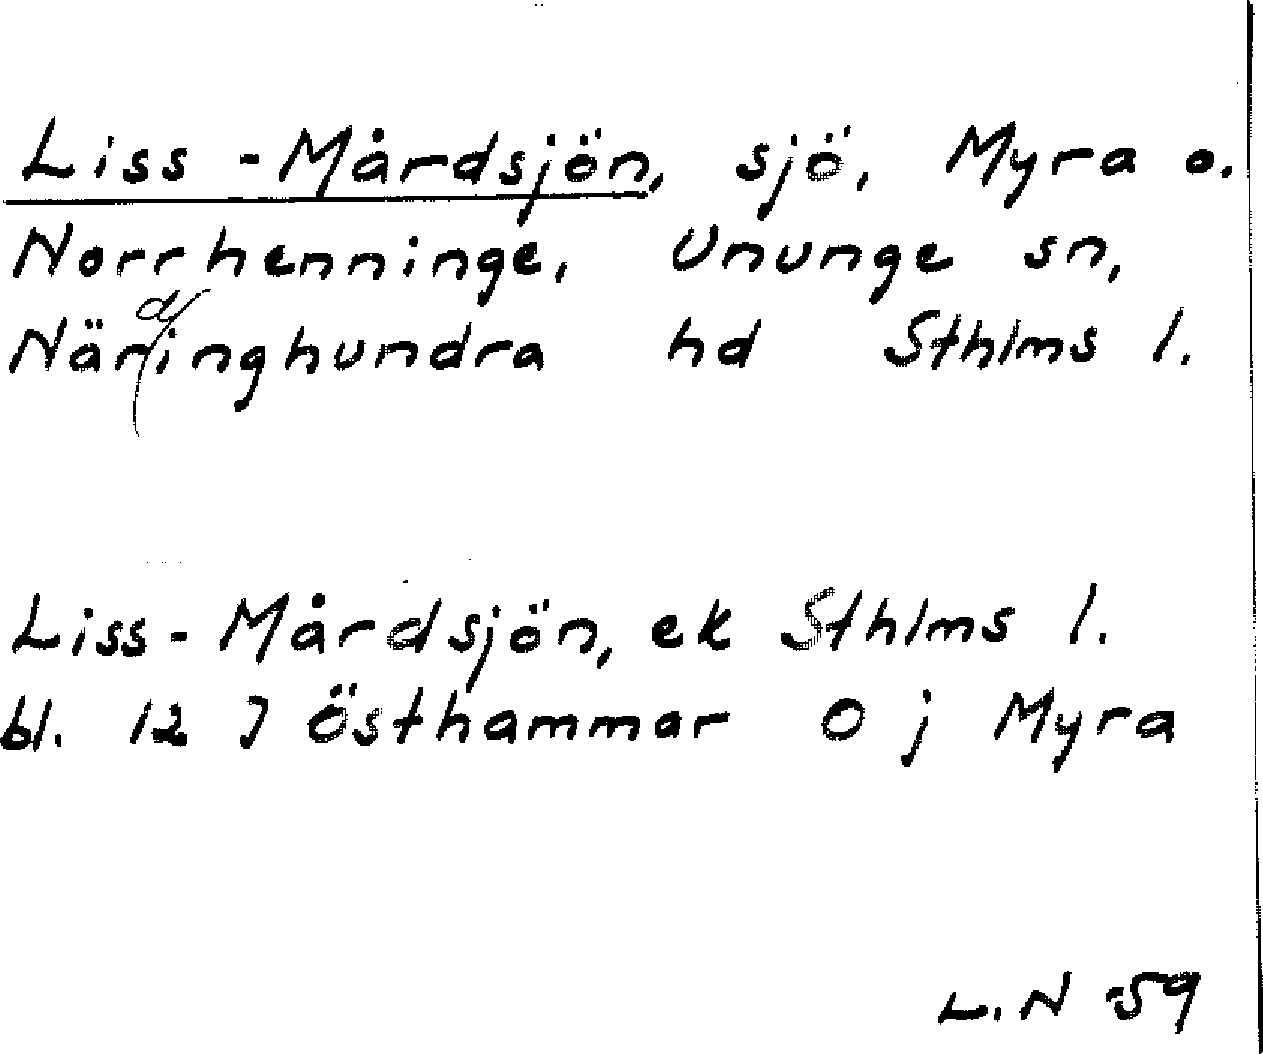 Liss-Mårdsjön, sjö, Myra o.
Norrhenninge, Ununge sn,
Närdinghundra hd Sthlms l.
Liss-Mårdsjön, ek Sthlms l.
bl. 12 J Östhammar O j Myra
L.N -59